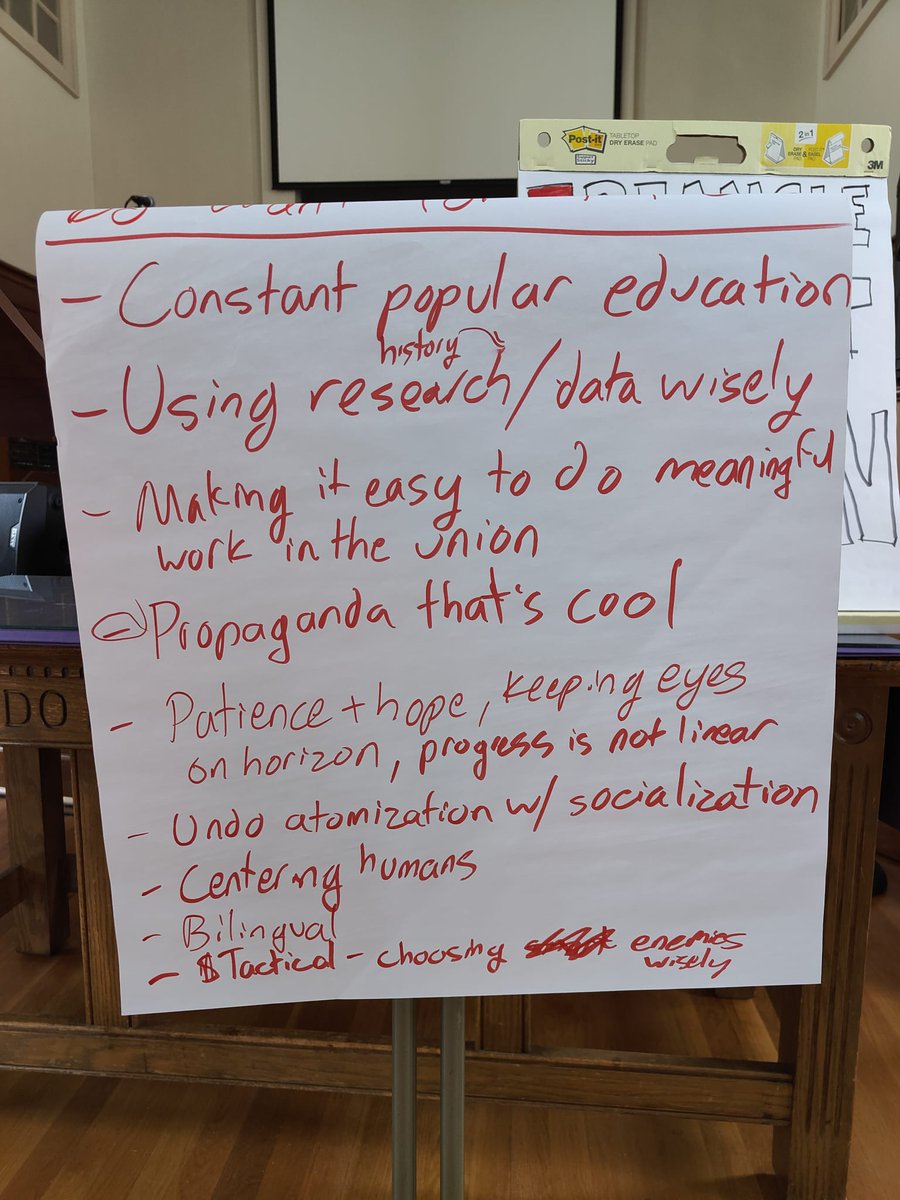 Post-it
TABLETOP
DRY ERASE PAD
2 in 1
3M
- Constant popular education
history
- Using research/data wisely
- Making it easy to do meaningful
work in the union
- Propaganda that's cool
- Patience + hope, keeping eyes
on horizon, progress is not linear
- Undo atomization w/ socialization
- Centering humans
- Bilingual
- $Tactical - choosing enemies
wisely
DO